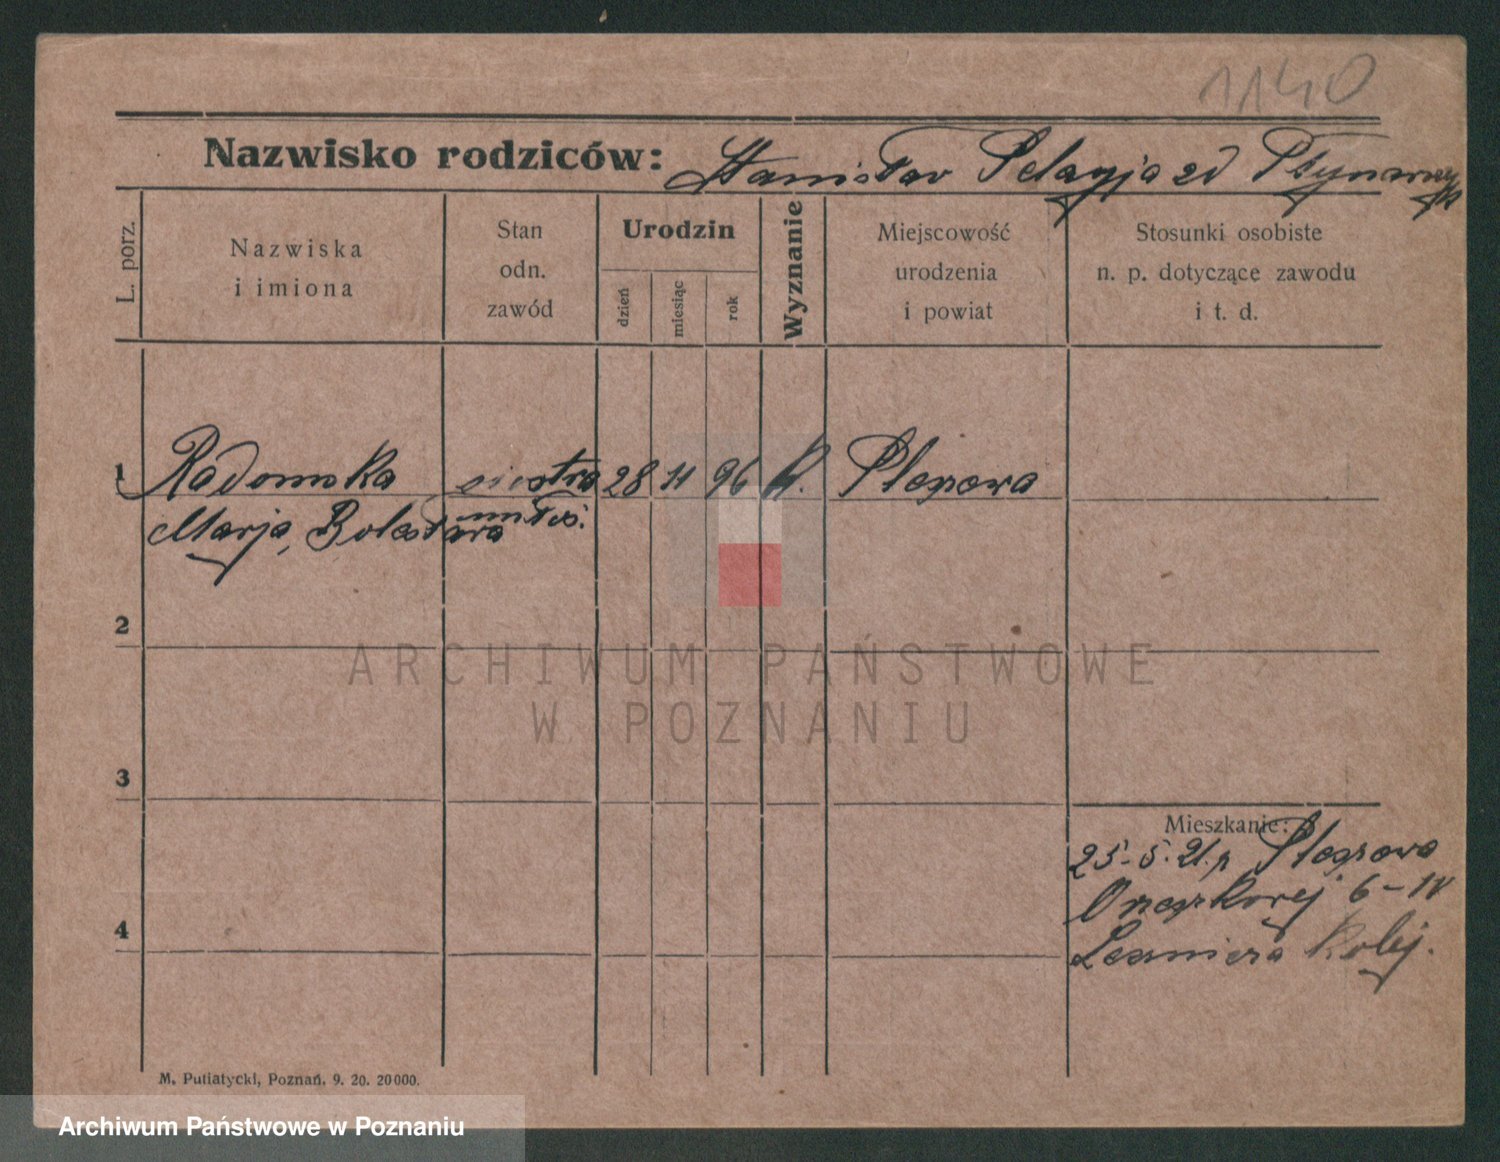 1140
Nazwisko rodziców: Stanisław Pelagja zd
L. porz.
Nazwiska
i imiona
Stan
odn.
zawód
Urodzin
dzień
miesiąc
rok
Wyznanie
Miejscowość
urodzenia
i powiat
Stosunki osobiste
n. p. dotyczące zawodu
i t. d.
1 Radomska siostra 28 11 96 k.
Marja, miłos.
2
ARCHIWUM PAŃSTWOWE
W POZNANIU
3
Mieszkanie:
25-5.21.p
6-IV
4
kolej.
M. Putiatycki, Poznań. 9. 20. 20000.
Archiwum Państwowe w Poznaniu